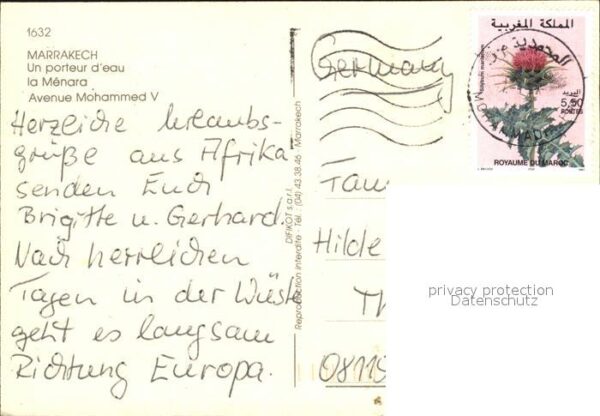 1632
MARRAKECH
Un porteur d'eau
la Ménara
Avenue Mohammed V
Herzliche Urlaubs-
grüße aus Afrika
senden Euch
Brigitte u. Gerhard.
Nach herrlichen
Tagen in der Wüste
geht es langsam
Richtung Europa.
DIFIKOT s.a.r.l.
Reproduction interdite - Tél.: (04) 43.38.46 - Marrakech
Germany
Hilde
08115
المملكة المغربية
المحمدية
MOHAMMEDIA
5,50
POSTES
ROYAUME DU MAROC
privacy protection
Datenschutz